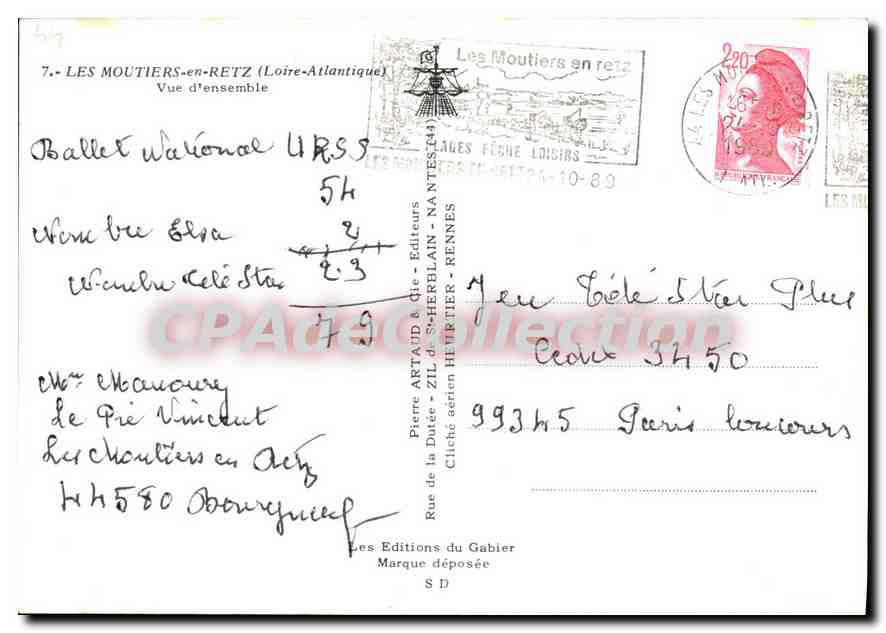 44
7.- LES MOUTIERS-en-RETZ (Loire-Atlantique)
Vue d'ensemble
Ballet National URSS
54
Nombre Elsa 2
Nombre Télé Star 23
79
Mme Manoury
Le Pré Vincent
Les Moutiers en Retz
44580 Bourgneuf
Pierre ARTAUD & Cie - Editeurs
Rue de la Dutée - ZIL de St-HERBLAIN - NANTES (44)
Cliché aérien HEURTIER - RENNES
Les Editions du Gabier
Marque déposée
S D
Les Moutiers en retz
PLAGES PÊCHE LOISIRS
LES MOUTIERS EN RETZ 24-10-89
2,20
44 LES MOUTIERS EN RETZ
16 H
24-10
1989
LES MO
Jeu Télé Star Plus
Cedex 3450
99345 Paris Concours
CPADeCollection